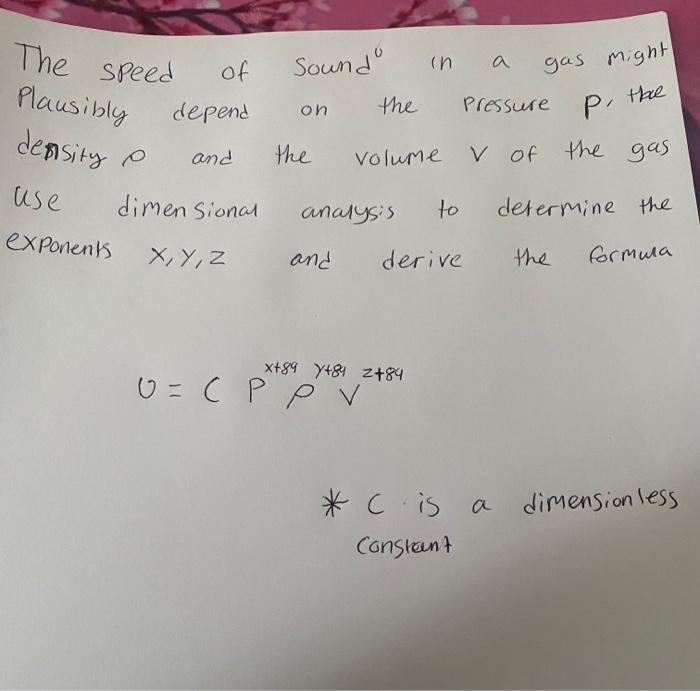 The speed of Sound υ in a gas might
Plausibly depend on the Pressure P, the
density ρ and the volume V of the gas
use dimensional analysis to determine the
exponents X, Y, Z and derive the formula
υ = C P^{x+89} ρ^{y+89} V^{z+89}
* C is a dimensionless
Constant